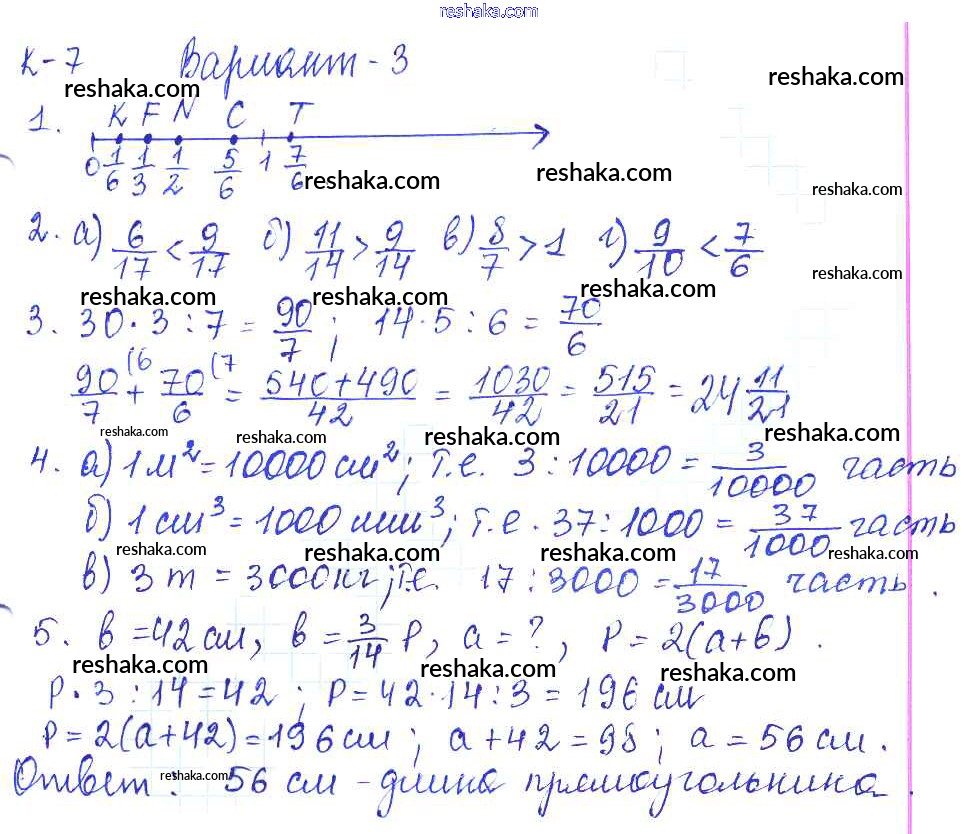 reshaka.com
К-7 Вариант - 3
reshaka.com reshaka.com
1. K F N C T
0 1/6 1/3 1/2 5/6 1 7/6
reshaka.com reshaka.com reshaka.com
2. а) 6/17 < 9/17 б) 11/14 > 9/14 в) 8/7 > 1 г) 9/10 < 7/6
reshaka.com reshaka.com reshaka.com reshaka.com
3. 30 · 3 : 7 = 90/7 ; 14 · 5 : 6 = 70/6
90/7 (6 + 70/6 (7 = 540+490/42 = 1030/42 = 515/21 = 24 11/21
reshaka.com reshaka.com reshaka.com reshaka.com
4. а) 1 м² = 10000 см²; т.е. 3 : 10000 = 3/10000 часть
б) 1 см³ = 1000 мм³; т.е. 37 : 1000 = 37/1000 часть
reshaka.com reshaka.com reshaka.com reshaka.com
в) 3 т = 3000 кг; т.е. 17 : 3000 = 17/3000 часть.
5. в = 42 см, в = 3/14 P, а = ?, P = 2(а+б).
reshaka.com reshaka.com reshaka.com
P · 3 : 14 = 42 ; P = 42 · 14 : 3 = 196 см
P = 2(а+42) = 196 см ; а + 42 = 98 ; а = 56 см.
Ответ: 56 см - длина прямоугольника.
reshaka.com reshaka.com reshaka.com